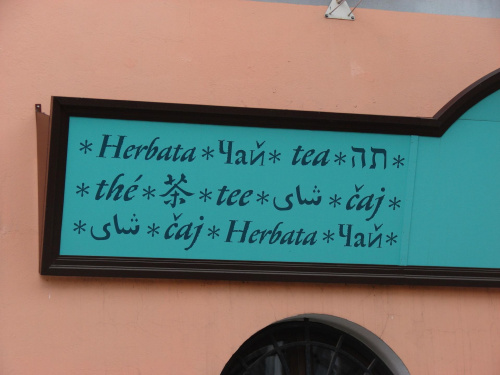 *Herbata*Чай* tea*תה*
*thé*茶*tee*شای*čaj*
*شای*čaj*Herbata*Чай*